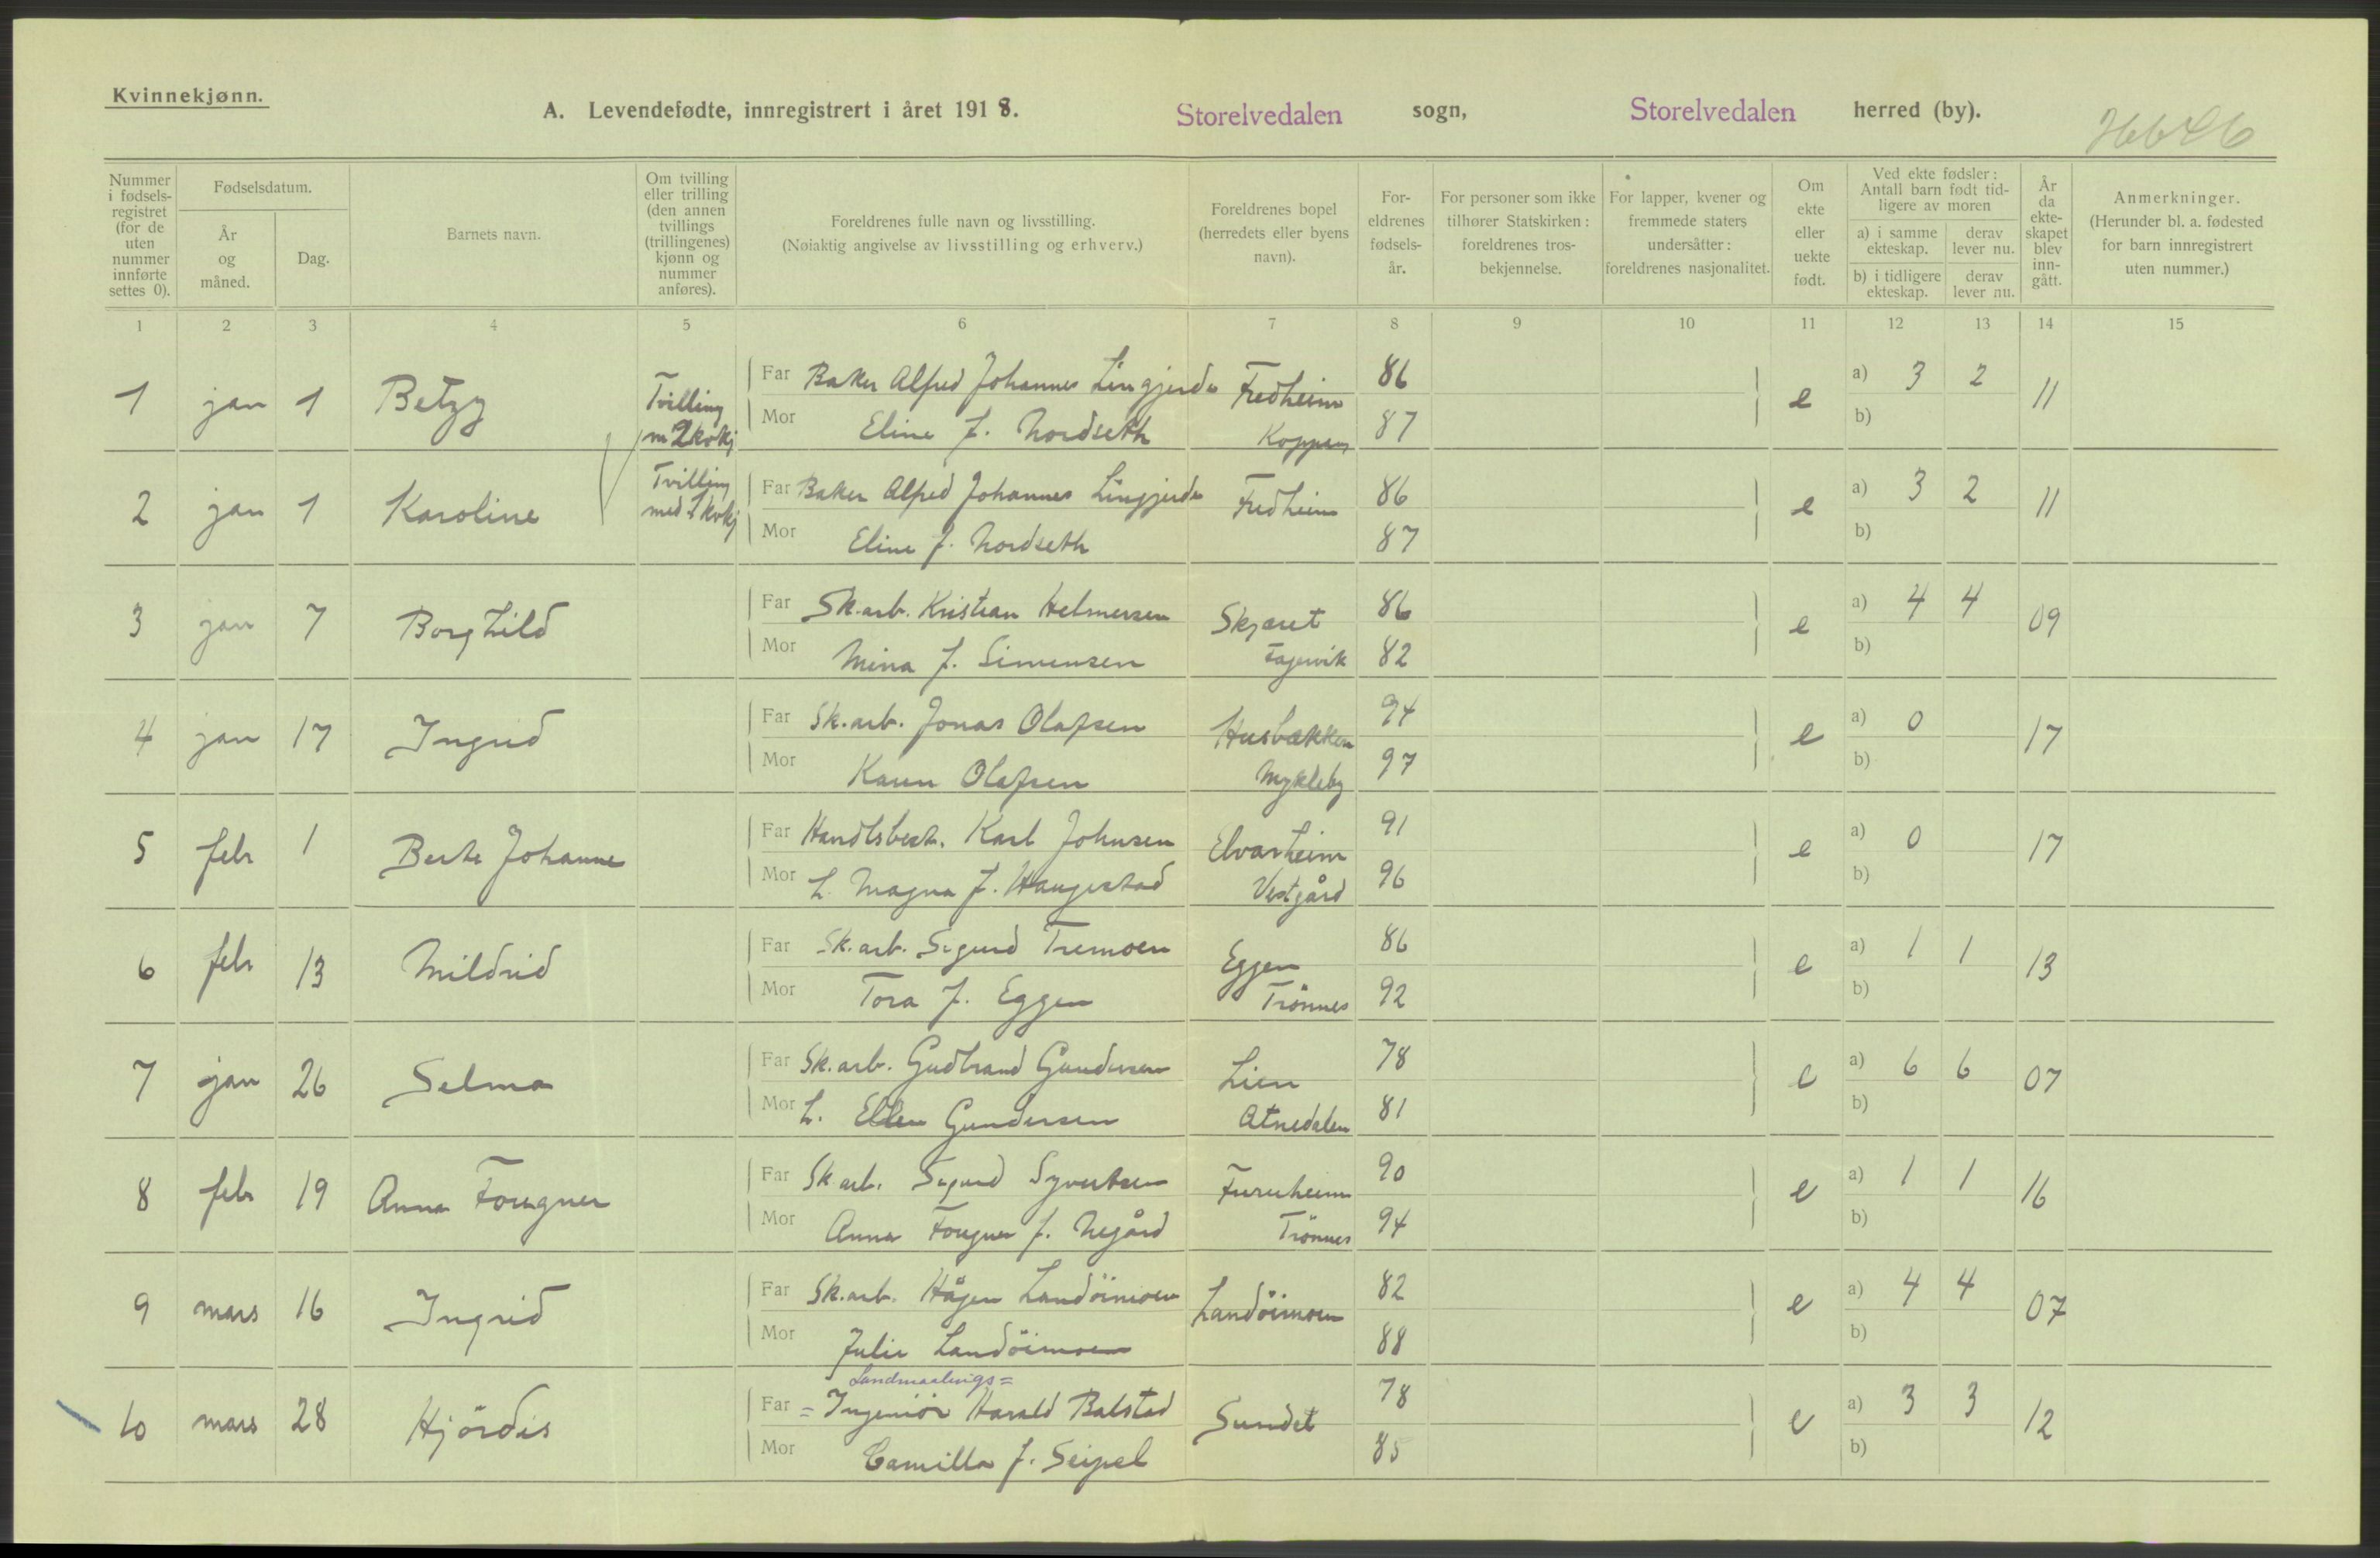 Kvinnekjønn.
A. Levendefødte, innregistrert i året 1918. Storelvedalen sogn, Storelvedalen herred (by).
Nummer i fødselsregistret (for de uten nummer innførte settes 0).
Fødselsdatum.
År og måned.
Dag.
Barnets navn.
Om tvilling eller trilling (den annen tvillings (trillingenes) kjønn og nummer anføres).
Foreldrenes fulle navn og livsstilling.
(Nøiaktig angivelse av livsstilling og erhverv.)
Foreldrenes bopel (herredets eller byens navn).
Foreldrenes fødselsår.
For personer som ikke tilhører Statskirken: foreldrenes trosbekjennelse.
For lapper, kvener og fremmede staters undersåtter: foreldrenes nasjonalitet.
Om ekte eller uekte født.
Ved ekte fødsler: Antall barn født tidligere av moren
a) i samme ekteskap. derav lever nu.
b) i tidligere ekteskap. derav lever nu.
År da ekteskapet blev inngått.
Anmerkninger.
(Herunder bl. a. fødested for barn innregistrert uten nummer.)
1 2 3 4 5 6 7 8 9 10 11 12 13 14 15
1 jan 1 Betzy Tvilling m 2 kvkj Far Baker Alfred Johannes Lingjerde Fredheim 86 e a) 3 2 11
Mor Eline f. Nordseth Koppang 87 b)
2 jan 1 Karoline Tvilling med 1 kvkj Far Baker Alfred Johannes Lingjerde Fredheim 86 e a) 3 2 11
Mor Eline f. Nordseth 87 b)
3 jan 7 Borghild Far Sk.arb. Kristian Helmersen Skjæret 86 e a) 4 4 09
Mor Mina f. Simensen Fagervik 82 b)
4 jan 17 Ingrid Far Sk.arb. Jonas Olafsen Husbækken 94 e a) 0 17
Mor Karen Olafsen Mykleby 97 b)
5 febr 1 Berte Johanne Far Handlsbest. Karl Johnsen Elvarheim 91 e a) 0 17
Mor L. Magna f. Haugestad Vestgård 96 b)
6 febr 13 Mildrid Far Sk.arb. Sigurd Tremoen Eggen 86 e a) 1 1 13
Mor Tora f. Eggen Trønnes 92 b)
7 jan 26 Selma Far Sk.arb. Gudbrand Gundersen Lien 78 e a) 6 6 07
Mor L. Ellen Gundersen Atnedalen 81 b)
8 febr 19 Anna Fougner Far Sk arb. Sigurd Syvertsen Furuheim 90 e a) 1 1 16
Mor Anna Fougner f. Negård Trönnes 94 b)
9 mars 16 Ingrid Far Sk.arb. Hågen Landöimoen Landöimoen 82 e a) 4 4 07
Mor Julie Landöimoen 88 b)
Landmaalings=
10 mars 28 Hjördis Far =Ingeniör Harald Balstad Sundet 78 e a) 3 3 12
Mor Camilla f. Seipel 85 b)